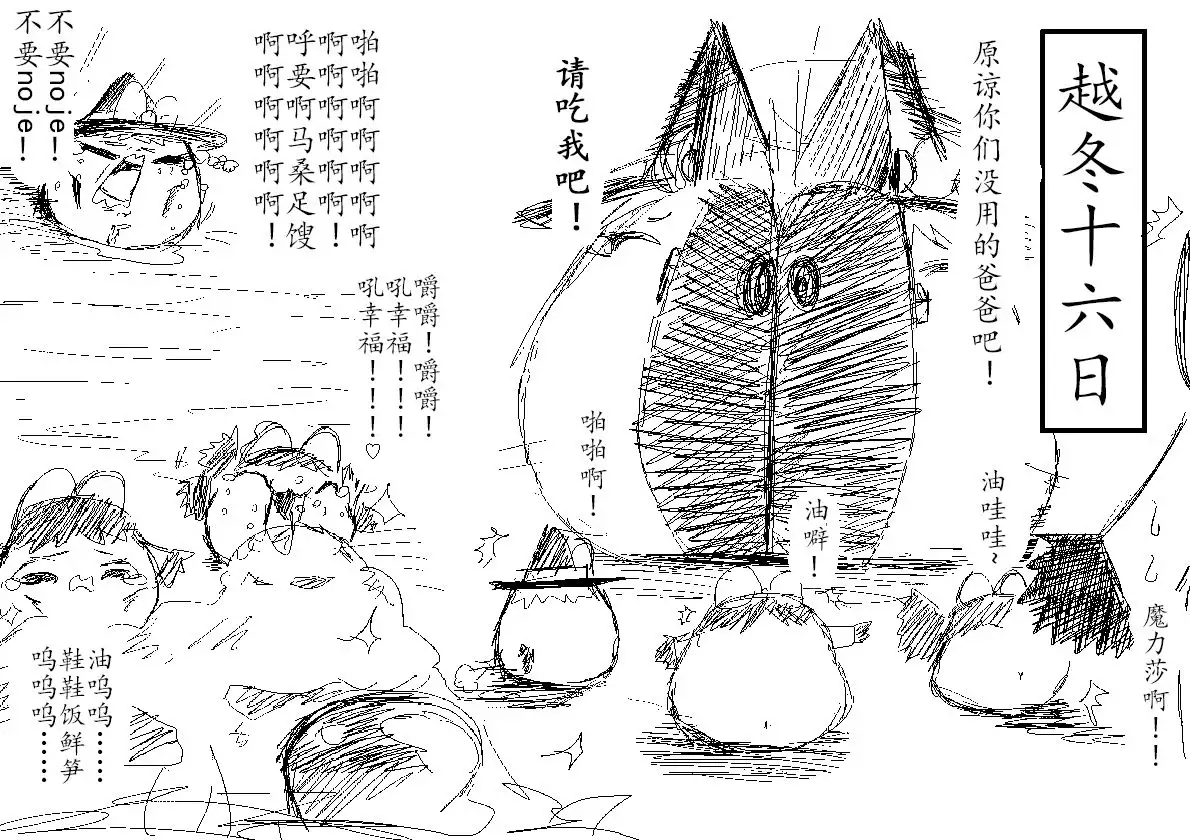 越冬十六日
原谅你们没用的爸爸吧！
请吃我吧！
啪啪啊啊啊啊啊
啊啊啊啊啊啊！
呼要啊马桑足馊
啊啊啊啊啊啊！
不要noje！
不要noje！
嚼嚼！嚼嚼！
吼幸福！！！！
吼幸福！！！！♡
啪啪啊！
油噼！
油哇哇~
魔力莎啊！！
油呜呜……
鞋鞋饭鲜笋
呜呜呜……